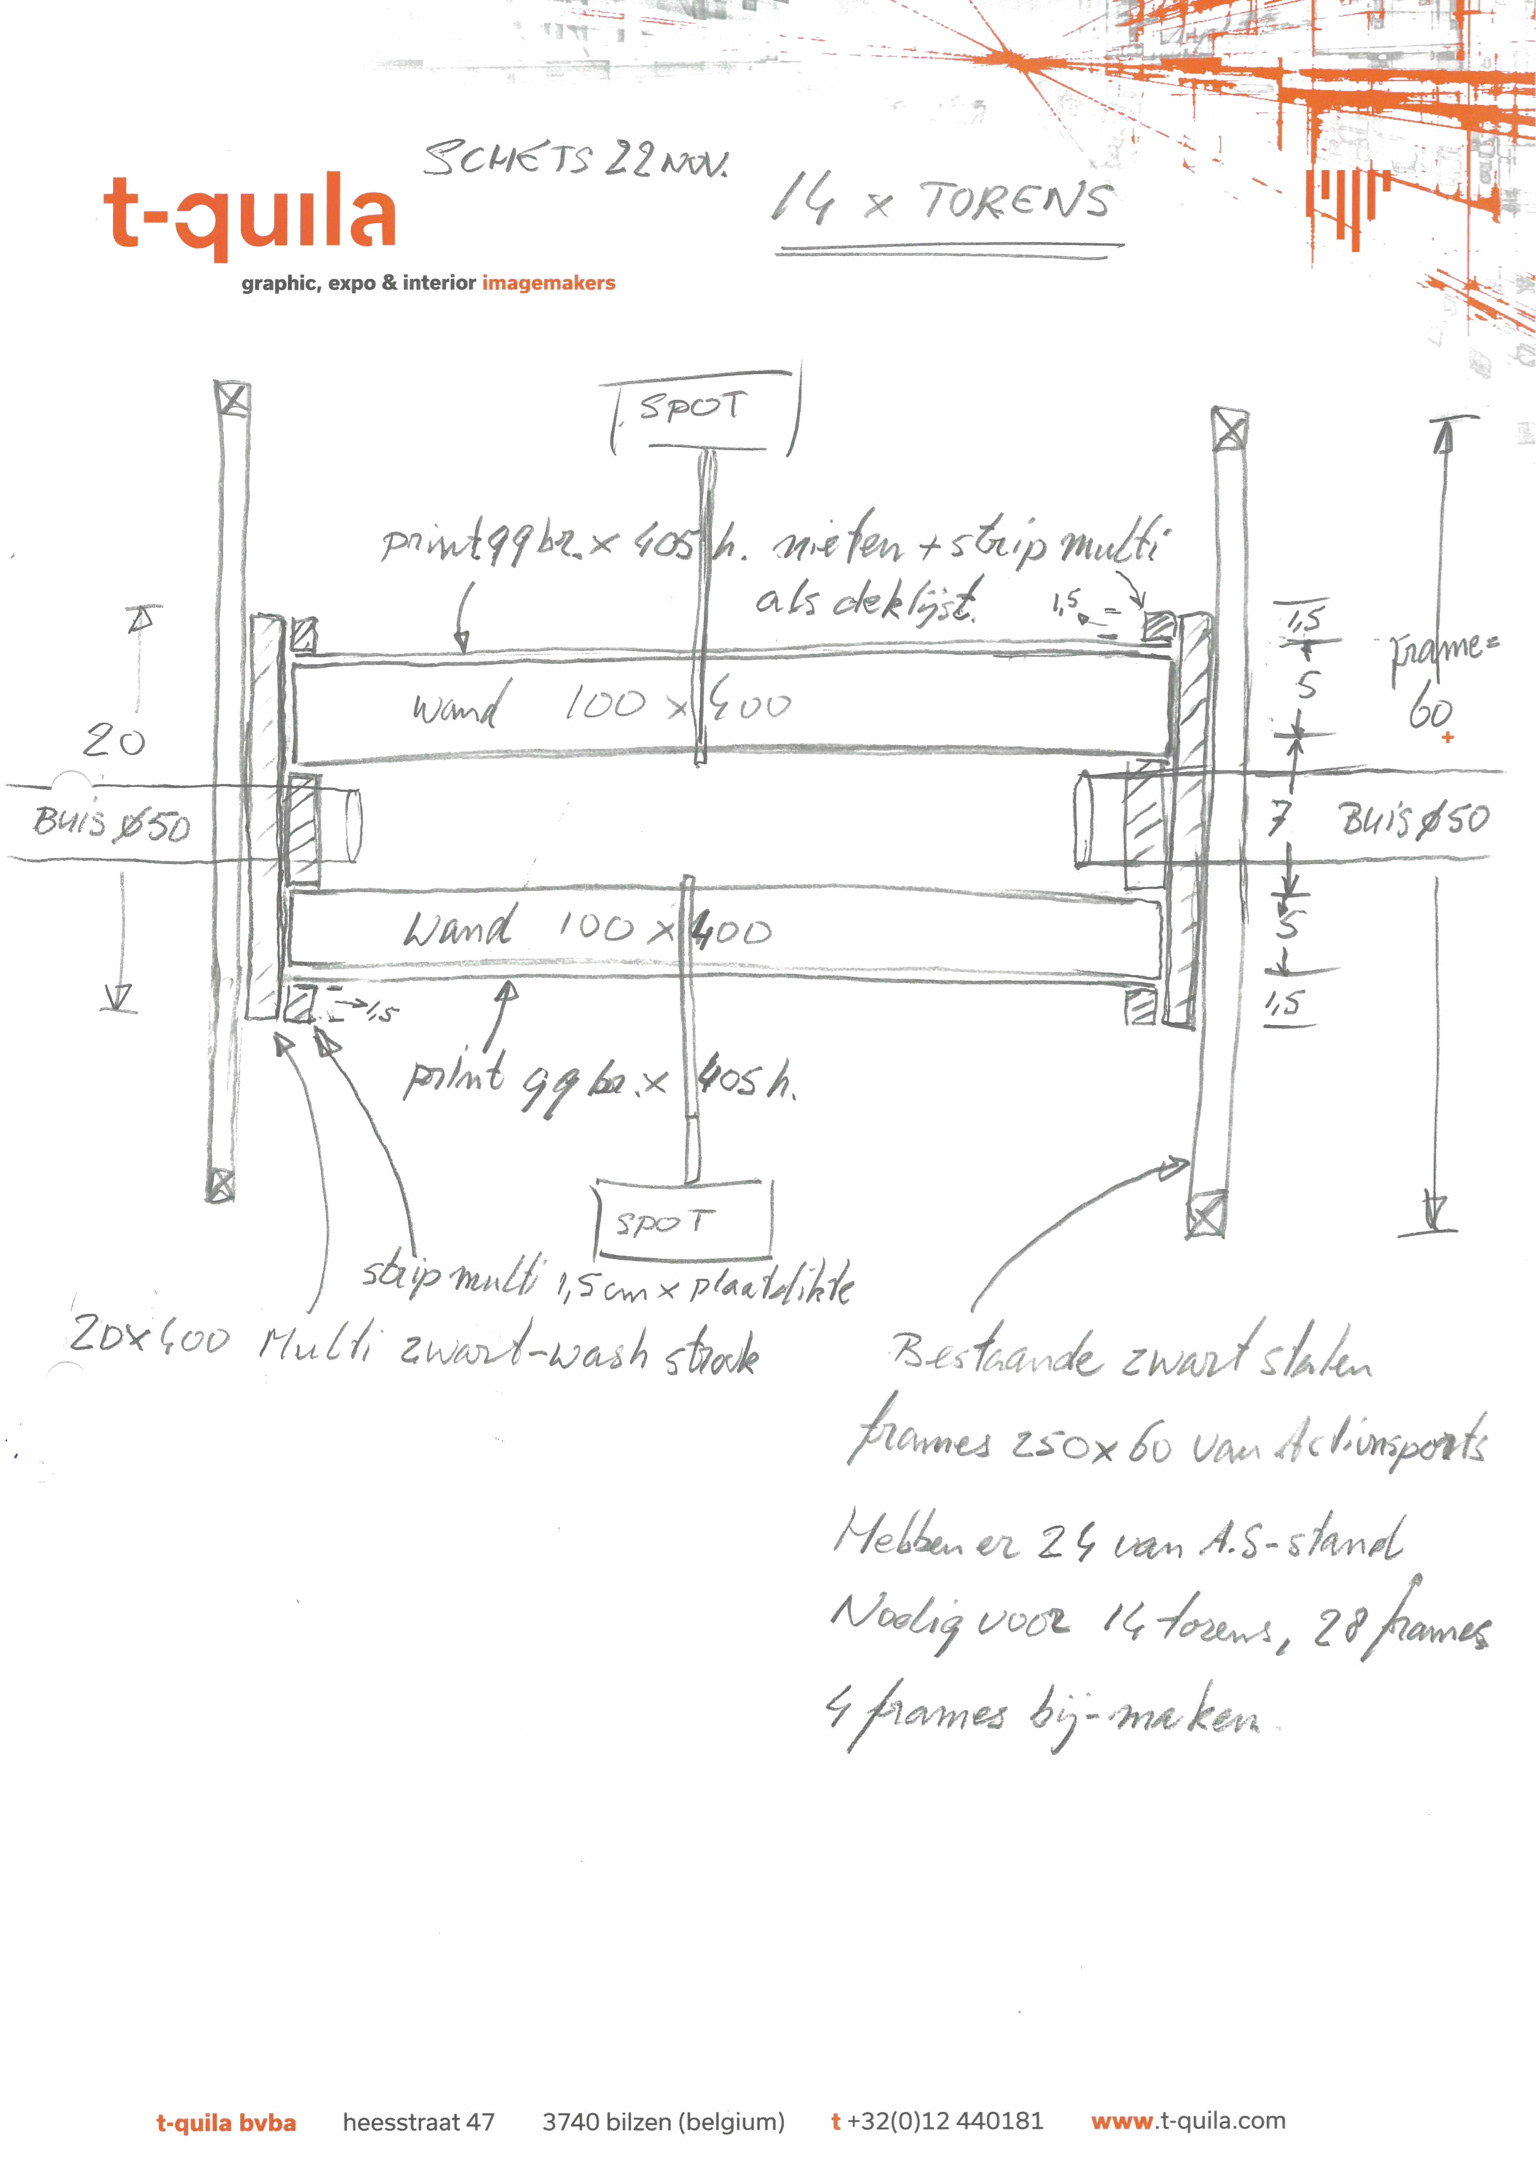 SCHETS 22 NOV.
14 x TORENS
t-quila
graphic, expo & interior imagemakers
SPOT
print 99 br. x 405 h. nieten + strip multi
als deklijst.
1,5
1,5
frame=
60
5
Wand 100 x 400
20
Buis ø50
7
Buis ø50
Wand 100 x 400
5
1,5
1,5
print 99 br. x 405 h.
SPOT
strip multi 1,5 cm x plaatdikte
20x400 Multi zwart-wash strook
Bestaande zwart stalen
frames 250x60 van Actionsports
Hebben er 24 van A.S-stand
Nodig voor 14 torens, 28 frames
4 frames bij-maken.
t-quila bvba heesstraat 47 3740 bilzen (belgium) t +32(0)12 440181 www.t-quila.com